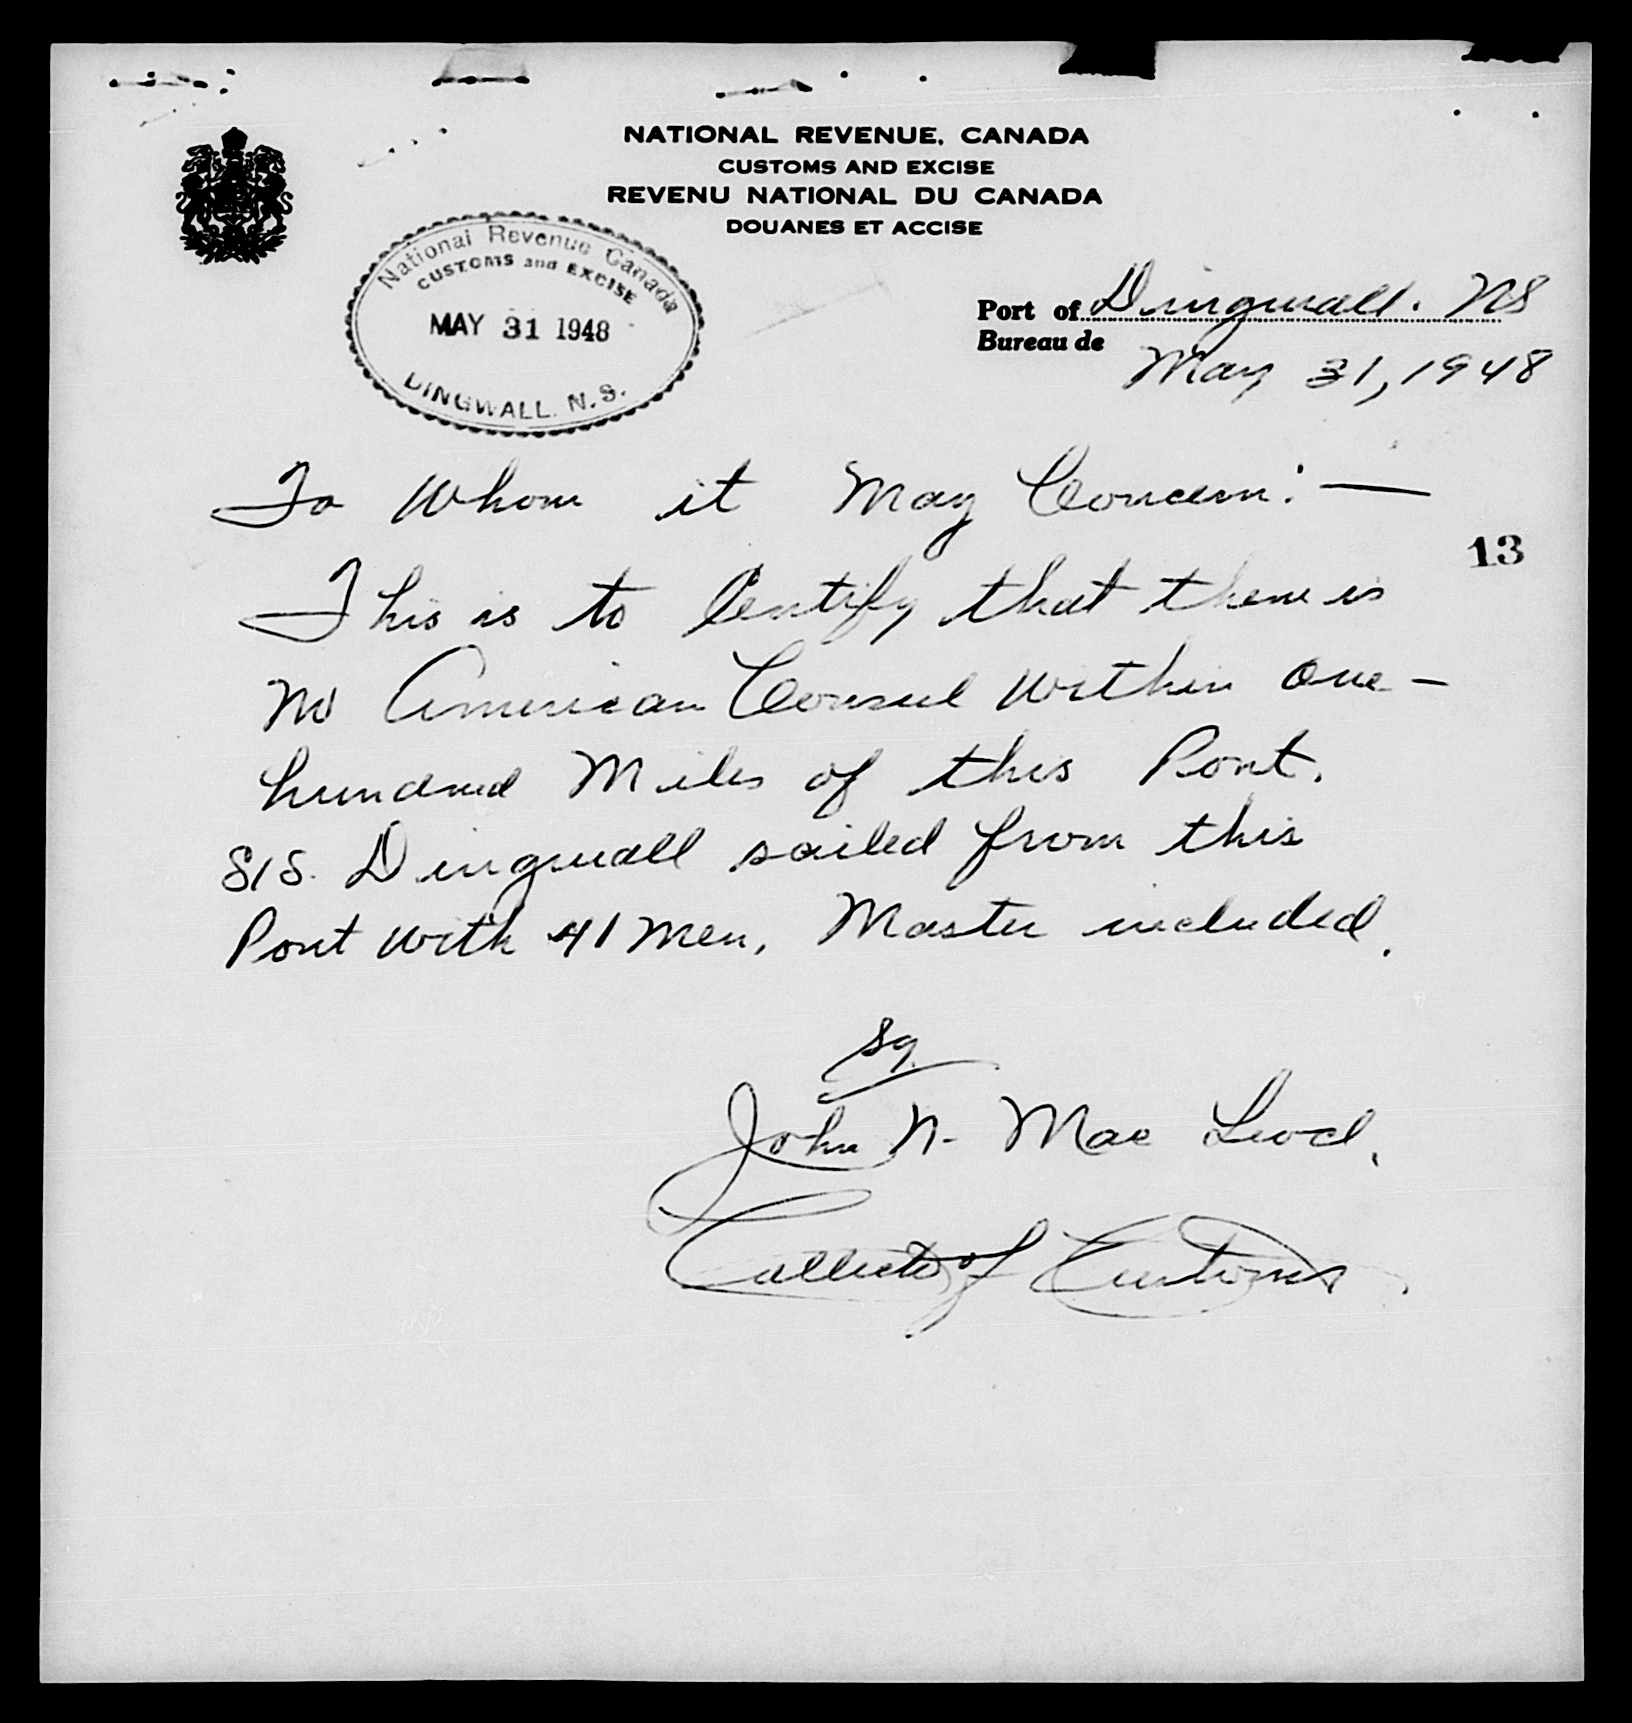 NATIONAL REVENUE, CANADA
CUSTOMS AND EXCISE
REVENU NATIONAL DU CANADA
DOUANES ET ACCISE
National Revenue Canada
CUSTOMS and EXCISE
MAY 31 1948
DINGWALL. N.S.
Port of Dingwall. NS
Bureau de
May 31, 1948
To Whom it May Concern: —
13
This is to Certify that there is
no American Consul within one-
hundred Miles of this Port.
S/S. Dingwall sailed from this
Port with 41 men, Master included.
Sg.
John N. Mac Leod.
Collector of Customs.